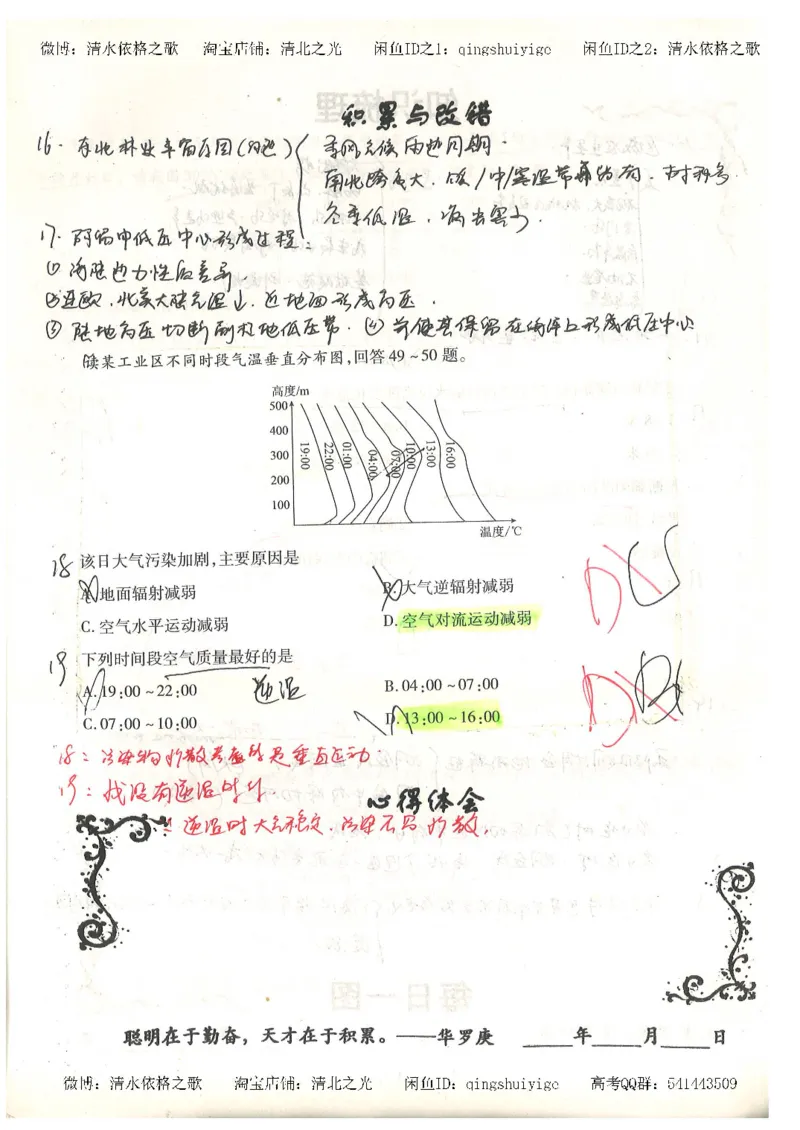 微博：清水依格之歌 淘宝店铺：清北之光 闲鱼ID之1：qingshuiyige 闲鱼ID之2：清水依格之歌
积累与改错
16. 东北林业丰富原因(自然) 季风气候雨热同期.
南北跨度大，暖/中/寒温带森林均有，树种多.
冬季低温，病虫害少.
17. 阿留申低压中心形成过程：
① 海陆热力性质差异
② 亚欧、北美大陆气温↓，近地面形成高压.
③ 陆地高压切断副极地低压带. ④ 并使其保留在海洋上形成低压中心
读某工业区不同时段气温垂直分布图,回答49~50题。
高度/m
500
400
300
200
100
19:00 22:00 01:00 04:00 07:00 10:00 13:00 16:00
温度/℃
18 该日大气污染加剧,主要原因是
A.地面辐射减弱 B.大气逆辐射减弱
C.空气水平运动减弱 D.空气对流运动减弱
D C
19 下列时间段空气质量最好的是
A.19:00~22:00 逆温 B.04:00~07:00
C.07:00~10:00 D.13:00~16:00
D B
18：污染物扩散考虑的是垂直运动.
19：找没有逆温时针
心得体会
!逆温时大气稳定,污染不易扩散.
聪明在于勤奋，天才在于积累。——华罗庚 ____年____月____日
微博：清水依格之歌 淘宝店铺：清北之光 闲鱼ID：qingshuiyige 高考QQ群：541443509